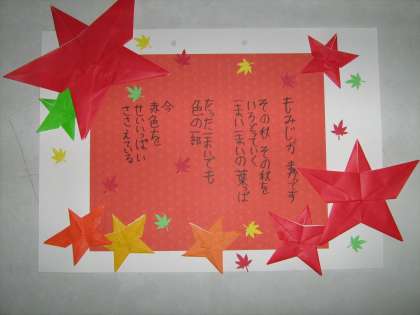 もみじが
その秋、その秋を
いろどっていく
一まい一まいの葉っぱ
たった一まいでも
色の一部
今
赤色を
せいいっぱい
ささえている